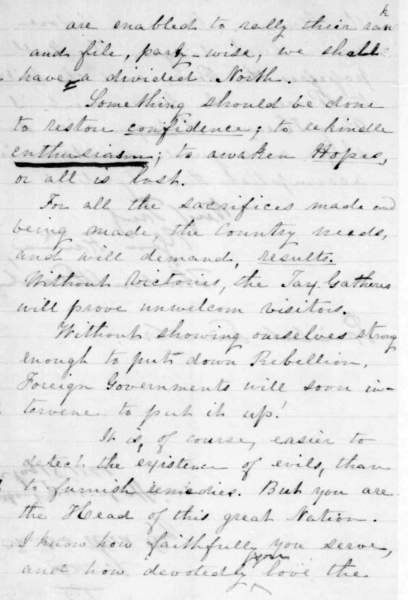 are enabled to rally their rank
and file, party-wise, we shall
have a divided North.
Something should be done
to restore confidence; to rekindle
enthusiasm; to awaken Hopes,
or all is lost.
For all the sacrifices made and
being made, the Country needs,
and will demand, results.
Without Victories, the Tax Gatherers
will prove unwelcom visitors.
Without showing ourselves strong
enough to put down Rebellion,
Foreign Governments will soon in-
tervene to put it up!
It is, of course, easier to
detect the existence of evils, than
to furnish remedies. But you are
the Head of this great Nation.
I know how faithfully you serve,
and how devotedly you love the